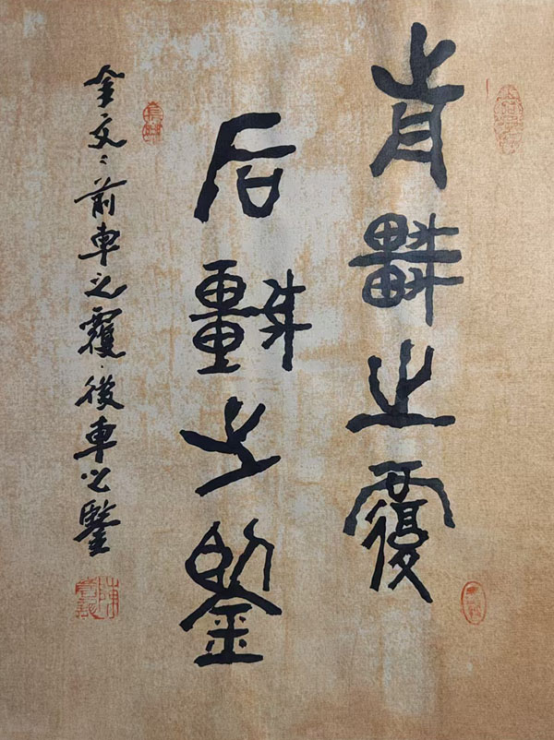 前車之覆
后車之鑒
金文：前車之覆，後車之鑒